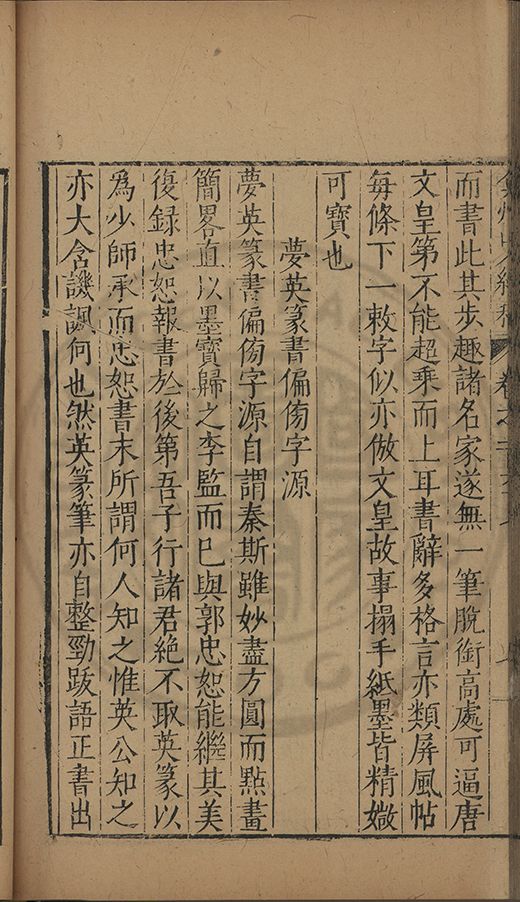 而書此其步趣諸名家遂無一筆脫銜高處可逼唐
文皇第不能超乘而上耳書辭多格言亦類屏風帖
每條下一敕字似亦倣文皇故事搨手紙墨皆精媺
可寶也
夢英篆書偏傍字源
夢英篆書偏傍字源自謂秦斯雖妙盡方圓而點畫
簡畧直以墨寳歸之李監而巳與郭忠恕能繼其美
復録忠恕報書於後第吾子行諸君絶不取英篆以
爲少師承而忠恕書末所謂何人知之惟英公知之
亦大含譏諷何也然英篆筆亦自整勁跋語正書出